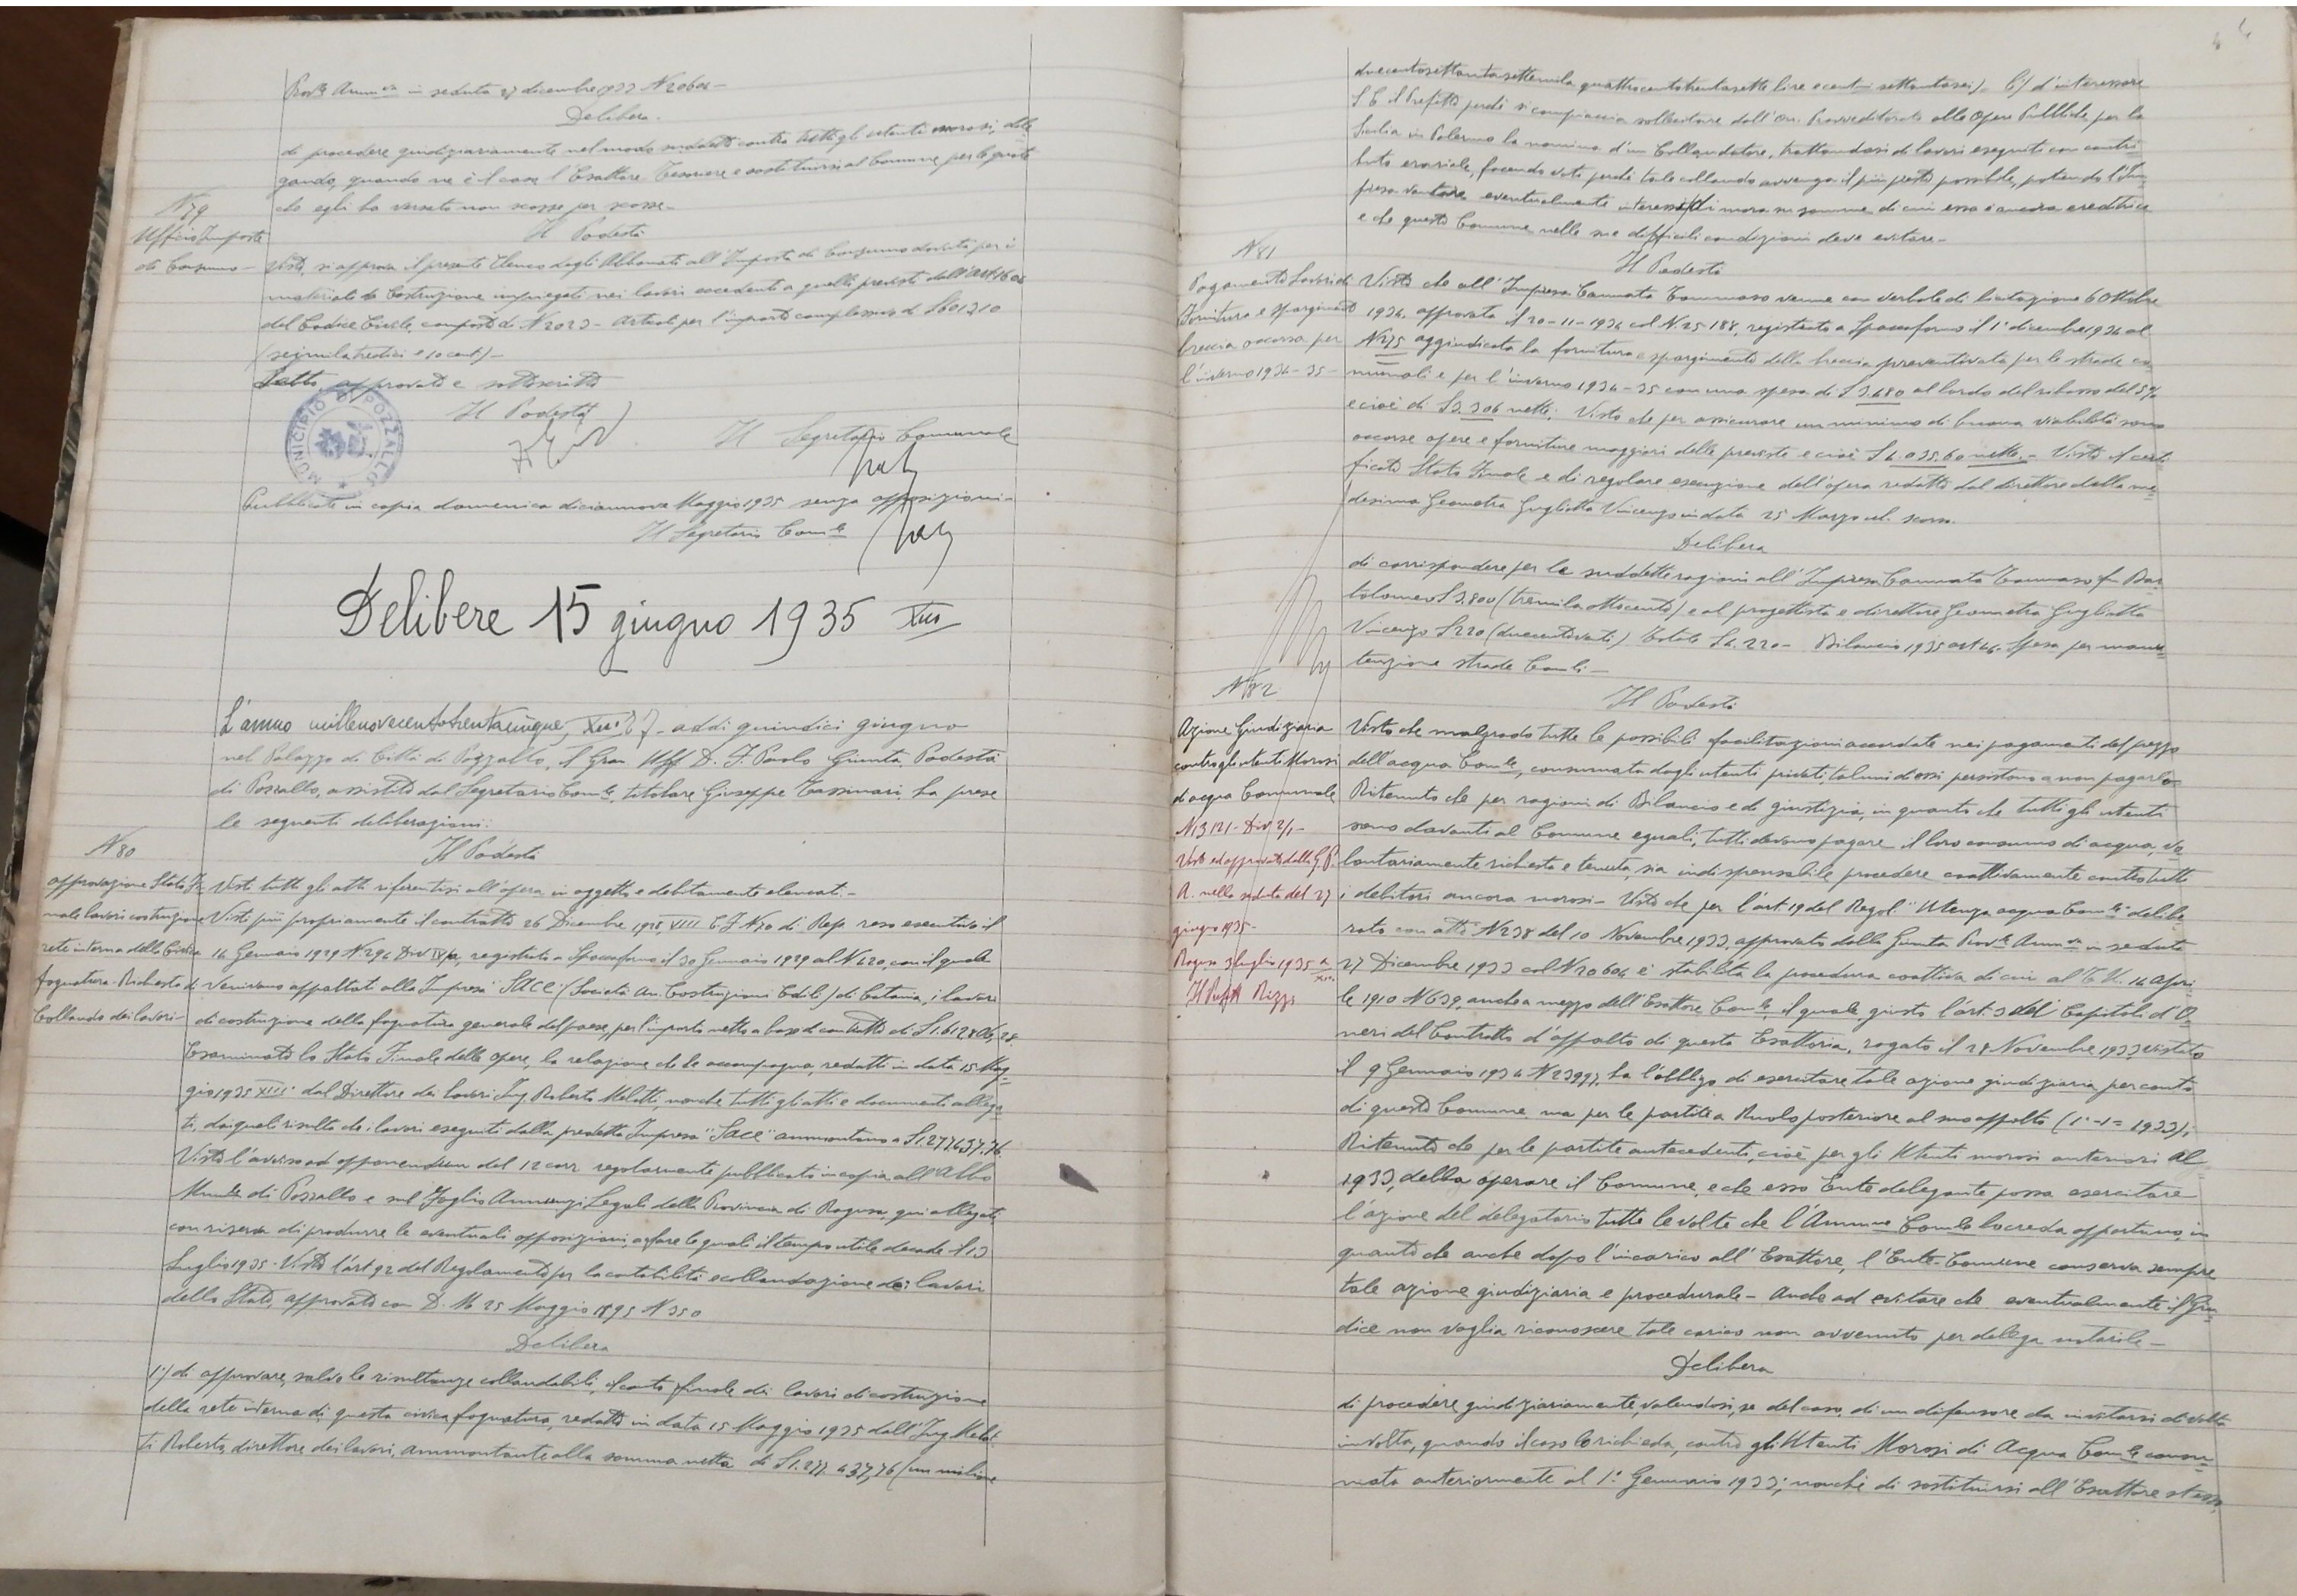 Prov.le Amm.va in seduta 27 dicembre 1933 N 20604 -
Delibera.
di procedere giudiziariamente nel modo suddetto contro tutti gli utenti morosi, dele
gando, quando ne è il caso l'Esattore Tesoriere e sostituirsi al Comune per le quote
che egli ha versato non scosse per scosse -
N 79
Ufficio Imposte
di Consumo -
Il Podestà
Visto, si approva il presente Elenco degli Abbonati all'Imposta di Consumo dovuta per i
materiali da Costruzione impiegati nei lavori eccedenti a quelli previsti dall'art. 1604
del Codice Civile, composto di N 2023 - Articoli per l'importo complessivo di £ 6013,10
(seimilatredici e 10 cent) -
Letto, approvato e sottoscritto
Il Podestà
MUNICIPIO DI POZZALLO
Il Segretario Comunale
Pubblicate in copia domenica diciannove Maggio 1935 senza opposizioni -
Il Segretario Com.le
Delibere 15 giugno 1935 XIII
L'anno millenovecentotrentacinque, XIII° addì quindici giugno
nel Palazzo di Città di Pozzallo, il Gran Uff. D. Paolo Giunta, Podestà
di Pozzallo, assistito dal Segretario Com.le titolare Giuseppe Tassinari, ha prese
le seguenti deliberazioni:
N 80
Approvazione Stato Fi
nale lavori costruzione
rete interna della Civica
fognatura - Richiesta di
Collaudo dei lavori -
Il Podestà
Visti tutti gli atti riferentisi all'opera in oggetto e debitamente elencati -
Visti più propriamente il contratto 26 Dicembre 1928, VIII E.F. N 50 di Rep. reso esecutivo il
14 Gennaio 1929 N. 294 Div IV/a, registrato a Spaccaforno il 30 Gennaio 1929 al N 420, con il quale
venivano appaltati alla Impresa "SACE" (Società An. Costruzioni Edili) di Catania, i lavori
di costruzione della fognatura generale del paese, per l'importo netto a base di contratto di £ 1.612806,28.
Esaminato lo Stato Finale delle opere, la relazione che lo accompagna, redatti in data 15 Mag=
gio 1935 XIII° dal Direttore dei lavori Ing. Roberto Melotti, nonché tutti gli atti e documenti allega
ti, dai quali risulta che i lavori eseguiti dalla predetta Impresa "Sace" ammontano a £ 1.277.437,76.
Visto l'avviso ad opponendum del 12 corr. regolarmente pubblicato in copia all'Albo
Mun.le di Pozzallo e sul Foglio Annunzi Legali della Provincia di Ragusa, qui allegati,
con riserva di produrre le eventuali opposizioni, a fare le quali il tempo utile decade il 13
Luglio 1935 - Visto l'art 92 del Regolamento per la contabilità e collaudazione dei lavori
dello Stato, approvato con D. M 25 Maggio 1895 N 350
Delibera
1°) di approvare, salvo le risultanze collaudabili, il conto finale dei lavori di costruzione
della rete interna di questa civica fognatura, redatto in data 15 Maggio 1935 dall'Ing. Melot=
ti Roberto, direttore dei lavori, ammontante alla somma netta di £ 1.277.437,76 (un milione
4
duecentosettantasettemila quattrocentotrentasette lire e cent.mi settantasei). b) d'interessare
S. E. il Prefetto perché si compiaccia sollecitare dall'On. Provveditorato alle Opere Pubbliche, per la
Sicilia in Palermo la nomina d'un Collaudatore, trattandosi di lavori eseguiti con contri
buto erariale, facendo voto perché tale collaudo avvenga il più presto possibile, potendo l'Im=
presa vantare eventualmente interessi di mora su somme di cui essa è ancora creditrice
e che questo Comune nelle sue difficili condizioni deve evitare -
N 81
Pagamento lavori di
fornitura e spargimento
breccia occorsa per
l'inverno 1934-35 -
Il Podestà
Visto che all'Impresa Cannata Tommaso venne con verbale di licitazione 6 Ottobre
1934, approvata il 20-11-1934 col N. 25188, registrato a Spaccaforno il 1° dicembre 1934 al
N 275 aggiudicata la fornitura e spargimento della breccia preventivata per le strade co
munali e per l'inverno 1934-35 con una spesa di £ 3.480 al lordo del ribasso del 5%
e cioè di £ 3.306 nette; Visto che per assicurare un minimo di buona viabilità sono
occorse opere e forniture maggiori delle previste e cioè £ 4.035.60 nette. - Visto il certi
ficato Stato Finale e di regolare esecuzione dell'opera redatto dal direttore della me=
desima Geometra Gugliotta Vincenzo in data 25 Marzo ul. scorso.
Delibera
di corrispondere per le suddette ragioni all'Impresa Cannata Tommaso fu Bar
tolomeo £ 3.800 (tremilaottocento) e al progettista e direttore Geometra Gugliotta
Vincenzo £ 220 (duecentoventi). Totale £ 4.220 - Bilancio 1935 art 46. Spesa per manu=
tenzione strade Com.li -
N 82
Azione Giudiziaria
contro gli utenti Morosi
d'acqua Comunale
N 3121 - Div 2/1 -
Visto ed approvato dalla G. P.
A. nella seduta del 27
giugno 1935 -
Ragusa 3 luglio 1935 A XIII
Il Prefetto Rizzo
Il Podestà
Visto che malgrado tutte le possibili facilitazioni accordate nei pagamenti del prezzo
dell'acqua Com.le, consumata dagli utenti privati taluni di essi persistono a non pagarlo
Ritenuto che per ragioni di Bilancio e di giustizia, in quanto che tutti gli utenti
sono davanti al Comune eguali, tutti devono pagare il loro consumo di acqua, vo
lontariamente richiesta e tenuta, sia indispensabile procedere coattivamente contro tutti
i debitori ancora morosi - Visto che per l'art. 19 del Regol. "Utenza acqua Com.le" delibe
rato con atto N 238 del 10 Novembre 1933, approvato dalla Giunta Prov.le Amm.va in seduta
27 Dicembre 1933 col N 20604 è stabilita la procedura coattiva di cui al T.U. 14 Apri
le 1910 N 639, anche a mezzo dell'Esattore Com.le, il quale, giusto l'art. 3 del Capitoli d'O
neri del Contratto d'appalto di questa Esattoria, rogato il 28 Novembre 1933 vistato
il 9 Gennaio 1934 N 23997, ha l'obbligo di esercitare tale azione giudiziaria per conto
di questo Comune ma per le partite a Ruolo posteriore al suo appalto (1°-1= 1933);
Ritenuto che per le partite antecedenti, cioè per gli Utenti morosi anteriori al
1933, debba operare il Comune, e che esso Ente delegante possa esercitare
l'azione del delegatario tutte le volte che l'Amm.ne Com.le lo creda opportuno, in
quanto che anche dopo l'incarico all'Esattore, l'Ente-Comune conserva sempre
tale azione giudiziaria e procedurale - Anche ad evitare che eventualmente il Giu=
dice non voglia riconoscere tale carico non avvenuto per delega notarile -
Delibera
di procedere giudiziariamente, valendosi, se del caso, di un difensore da invitarsi di volta
in volta, quando il caso lo richieda, contro gli Utenti Morosi di Acqua Com.le consu=
mata anteriormente al 1° Gennaio 1933; nonché di sostituirsi all'Esattore stesso,